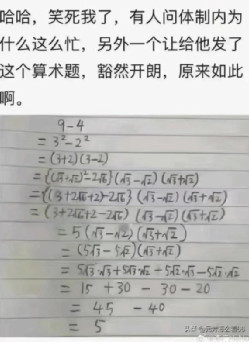 哈哈，笑死我了，有人问体制内为
什么这么忙，另外一个让给他发了
这个算术题，豁然开朗，原来如此
啊。
9-4
= 3²-2²
= (3+2)(3-2)
= {(√3+√2)²-2√6} (√3-√2) (√3+√2)
= {(3+2√6+2)-2√6} (√3-√2) (√3+√2)
= (3+2√6+2-2√6) (√3-√2) (√3+√2)
= 5 (√3-√2) (√3+√2)
= (5√3-5√2)(√3+√2)
= 5√3·√3+5√3·√2-5√2·√3-5√2·√2
= 15 +30 - 30 -20
= 45 -40
= 5